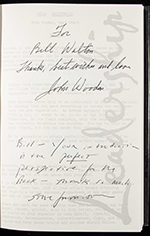 For
Bill Walton
Thanks, best wishes and love
John Wooden
Bill - Your introduction
is the perfect
perspective for the
book - thanks so much
Steve Jamison
Leadership